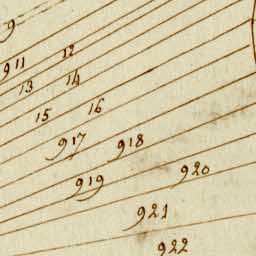 9
12
911
14
13
16
15
917
918
919
920
921
922